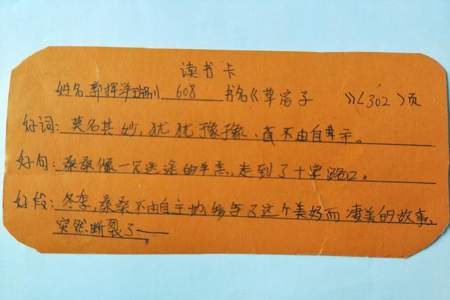 读书卡
姓名 郭挥洋 班别 608 书名《草房子》〈302〉页
好词：莫名其妙、犹犹豫豫、真不由自主。
好句：桑桑像一只迷途的羊羔，走到了十字路口。
好段：冬季，桑桑不由自主地 了这个美好而凄美的故事，
突然断裂了——